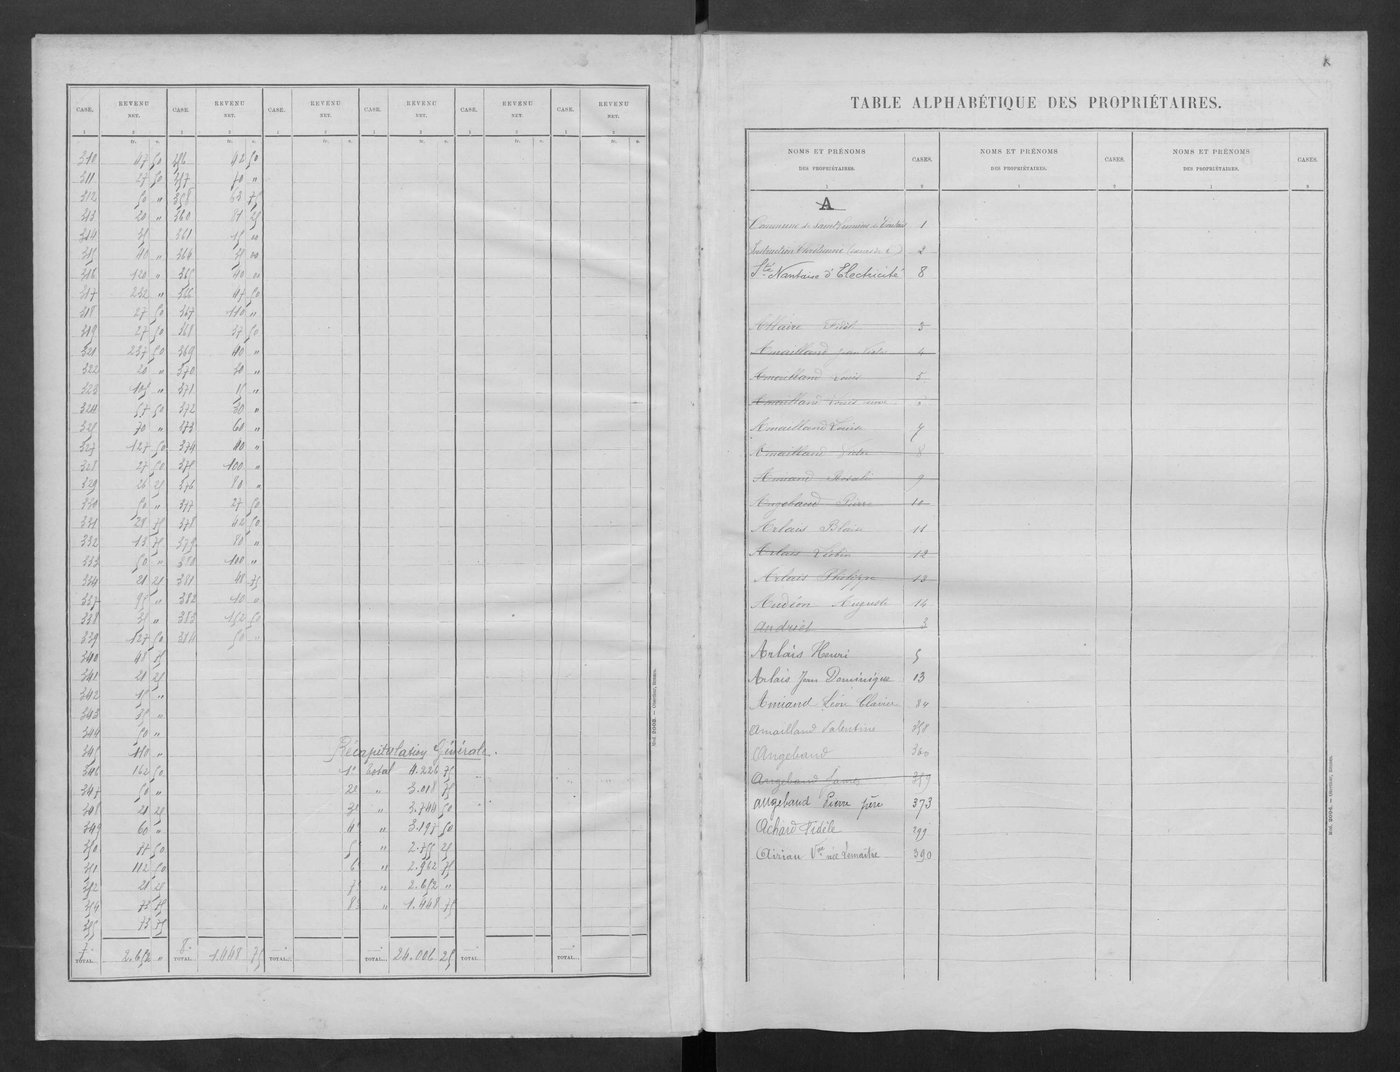 CASE. REVENU NET. CASE. REVENU NET. CASE. REVENU NET. CASE. REVENU NET. CASE. REVENU NET. CASE. REVENU NET.
1 2 1 2 1 2 1 2 1 2 1 2
fr. c. fr. c. fr. c. fr. c. fr. c. fr. c.
310 47 50 356 42 50
311 27 50 357 70 "
312 50 " 358 63 75
313 20 " 360 81 25
314 35 361 15 "
315 40 " 364 35 "
316 120 " 365 40 "
317 232 " 366 47 50
318 27 50 367 110 "
319 27 50 368 37 50
321 237 50 369 40 "
322 20 " 370 30 "
323 105 " 371 15 "
324 57 50 372 30 "
325 70 " 373 60 "
327 127 50 374 40 "
328 27 50 375 100 "
329 26 25 376 80 "
330 50 " 377 27 50
331 28 75 378 42 50
332 13 75 379 80 "
333 50 " 380 100 "
334 21 25 381 48 75
337 95 " 382 10 "
338 35 " 383 152 50
339 127 50 384 50 "
340 48 75
341 21 25
342 15 "
343 35 "
344 50 "
345 110 " Récapitulation Générale.
346 162 50 1° Total 4.226 75
347 50 " 2° " 3.018 75
348 21 25 3° " 3.744 50
349 60 " 4° " 3.197 50
350 87 50 5° " 2.755 25
351 112 50 6° " 2.962 75
352 21 25 7° " 2.652 "
354 75 75 8° " 1.448 75
355 73 75
7. TOTAL. 2.652 " 8. TOTAL. 1.448 75 TOTAL... TOTAL... 24.006 25 TOTAL... TOTAL...
Mod. 2003. — Oberthur, Rennes.
TABLE ALPHABÉTIQUE DES PROPRIÉTAIRES.
NOMS ET PRÉNOMS DES PROPRIÉTAIRES. CASES. NOMS ET PRÉNOMS DES PROPRIÉTAIRES. CASES. NOMS ET PRÉNOMS DES PROPRIÉTAIRES. CASES.
1 2 1 2 1 2
A
Commune de Saint 1
Instruction Chrétienne 2
Sté Nantaise d'Electricité 8
Allaire 3
Amailland 4
Amailland Louis 5
Amailland Louis
Amailland Louise 7
Amailland 8
Amiand Rosalie 9
Angebaud Pierre 10
Arlais Blaise 11
Arlais 12
Arlais Philippe 13
Audion Auguste 14
Andriet 3
Arlais Henri 5
Arlais Jean Dominique 13
Amiand Léon Clavier 84
Amailland Valentine 358
Angebaud 360
Angebaud 359
Angebaud Pierre père 373
Achard Fidèle 299
Airiau Vve née Lemaitre 390
Mod. 2004. — Oberthur, Rennes.